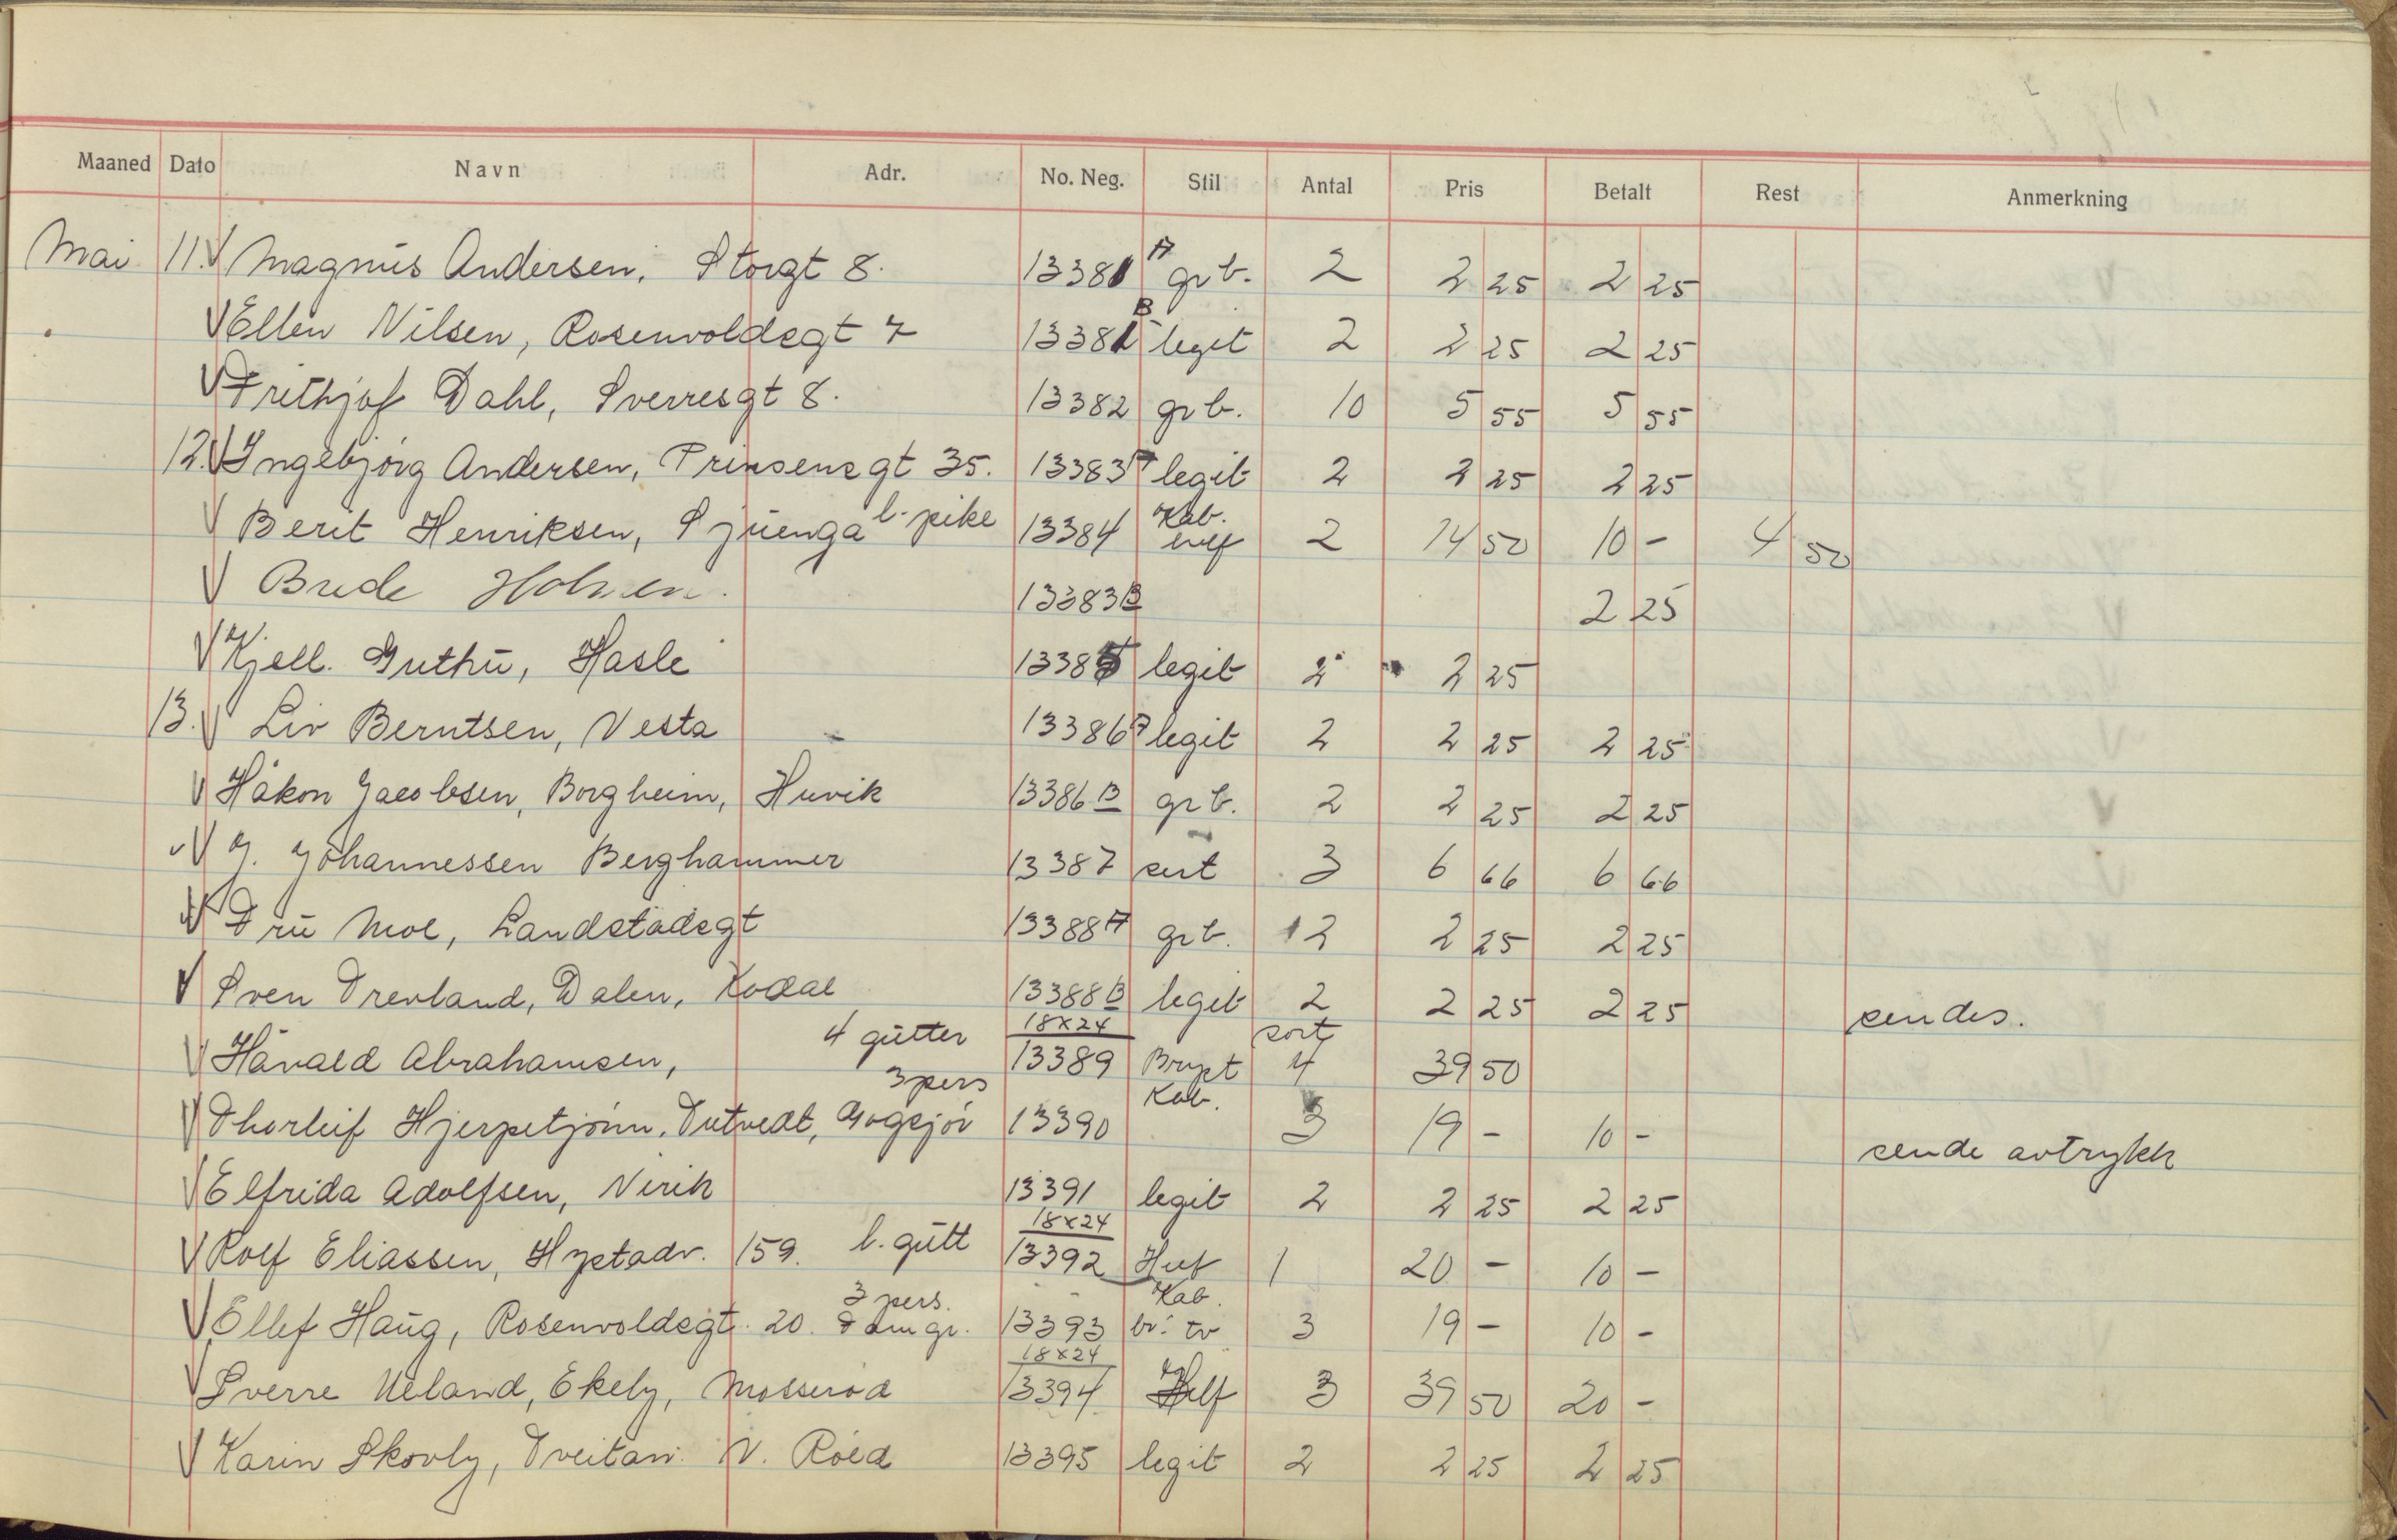 Maaned Dato Navn Adr. No. Neg. Stil Antal Pris Betalt Rest Anmerkning
Mai 11. V Magnus Andersen, Storgt 8. 13381 A grb. 2 2 25 2 25
V Ellen Nilsen, Rosenvoldsgt 7 13381 B legit 2 2 25 2 25
V Frithjof Dahl, Sverresgt 8. 13382 grb. 10 5 55 5 55
12. V Ingebjørg Andersen, Prinsensgt 35. 13383 A legit 2 2 25 2 25
V Berit Henriksen, l. pike 13384 Kab. 2 14 50 10 - 4 50
V Brede Holmen. 13383 B 2 25
V Kjell. Guthu, Hasle 13385 legit 2 2 25
13. V Liv Berntsen, Vesta 13386 A legit 2 2 25 2 25
V Håkon Jacobsen, Borgheim, Huvik 13386 B grb. 2 2 25 2 25
V J. Johannessen Berghammer 13387 sert 3 6 66 6 66
V Fru Moe, Landstadsgt 13388 A grb. 12 2 25 2 25
V Sven Trevland, Dalen, Kodal 13388 B legit 2 2 25 2 25 sendes.
4 gutter 18x24 sort
V Håvald Abrahamsen, 13389 Bryst 4 39 50
3 pers Kab.
V Thorleif Hjerpetjønn, Tutvedt, Gogsjø 13390 3 19 - 10 - sende avtrykk
V Elfrida Adolfsen, Virik 13391 legit 2 2 25 2 25
l. gutt 18x24
V Rolf Eliassen, Hystadv. 159. 13392 1 20 - 10 -
3 pers. Kab.
V Ellef Haug, Rosenvoldsgt. 20. Famgr. 13393 3 19 - 10 -
18x24
V Sverre Ueland, Ekely, Mosserød 13394 Helf 3 39 50 20 -
V Karin Skovly, Tveitan. N. Roed 13395 legit 2 2 25 2 25